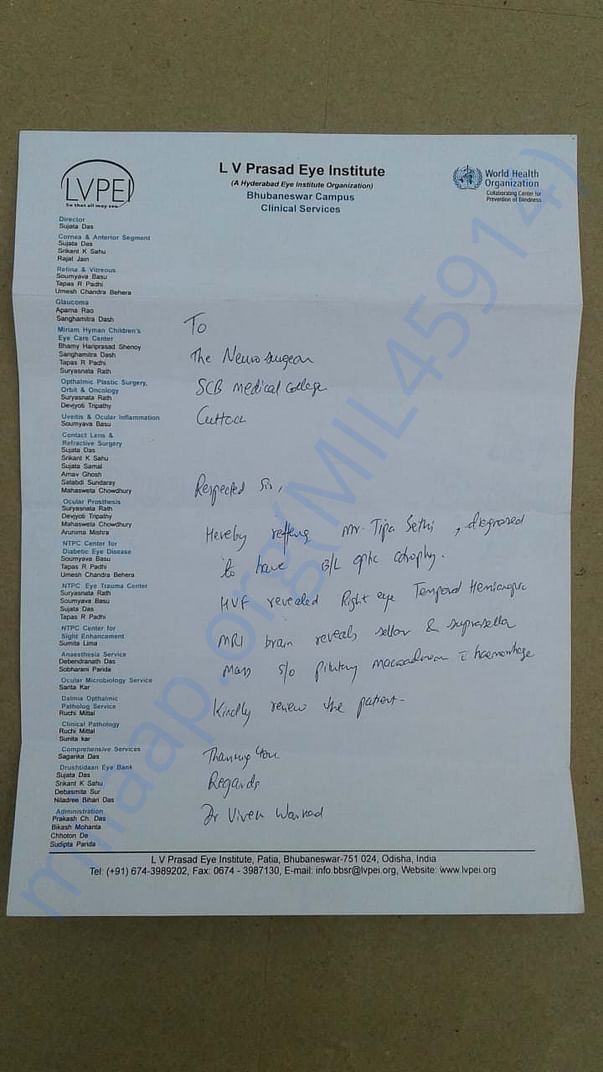 LVPEI
So that all may see
L V Prasad Eye Institute
(A Hyderabad Eye Institute Organization)
Bhubaneswar Campus
Clinical Services
World Health
Organization
Collaborating Center for
Prevention of Blindness
Director
Sujata Das
Cornea & Anterior Segment
Sujata Das
Srikant K Sahu
Rajat Jain
Retina & Vitreous
Soumyava Basu
Tapas R Padhi
Umesh Chandra Behera
Glaucoma
Aparna Rao
Sanghamitra Dash
Miriam Hyman Children's
Eye Care Center
Bhamy Hariprasad Shenoy
Sanghamitra Dash
Tapas R Padhi
Suryasnata Rath
Opthalmic Plastic Surgery,
Orbit & Oncology
Suryasnata Rath
Devjyoti Tripathy
Uveitis & Ocular Inflammation
Soumyava Basu
Contact Lens &
Refractive Surgery
Sujata Das
Srikant K Sahu
Sujata Samal
Arnav Ghosh
Satabdi Sundaray
Mahasweta Chowdhury
Ocular Prosthesis
Suryasnata Rath
Devjyoti Tripathy
Mahasweta Chowdhury
Arunima Mishra
NTPC Center for
Diabetic Eye Disease
Soumyava Basu
Tapas R Padhi
Umesh Chandra Behera
NTPC Eye Trauma Center
Suryasnata Rath
Soumyava Basu
Sujata Das
Tapas R Padhi
NTPC Center for
Sight Enhancement
Sumita Lima
Anaesthesia Service
Debendranath Das
Sobharani Parida
Ocular Microbiology Service
Sarita Kar
Dalmia Opthalmic
Patholog Service
Ruchi Mittal
Clinical Pathology
Ruchi Mittal
Sunita kar
Comprehensive Services
Saganka Das
Drushtidaan Eye Bank
Sujata Das
Srikant K Sahu
Debasmita Sur
Niladree Bihari Das
Administration
Prakash Ch. Das
Bikash Mohanta
Chhoton De
Sudipta Parida
To
The Neurosurgeon
SCB medical college
Cuttack
Respected Sir,
Hereby reffering Mr. Tipa Sethi , diagnosed
to have B/L optic atrophy.
HVF revealed Right eye Temporal Hemianopia
MRI brain reveals sellar & suprasellar
Mass s/o pituitary macroadenoma c haemorrhage
Kindly review the patient-
Thanking You
Regards
Dr Vivek Warkad
L V Prasad Eye Institute, Patia, Bhubaneswar-751 024, Odisha, India
Tel: (+91) 674-3989202, Fax: 0674 - 3987130, E-mail: info.bbsr@lvpei.org, Website: www.lvpei.org
milaap.org(MIL45914)